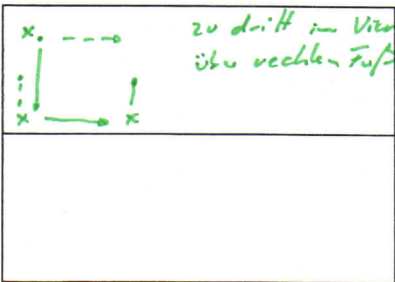 zu dritt im Vier
über rechten Fuß
x
x x